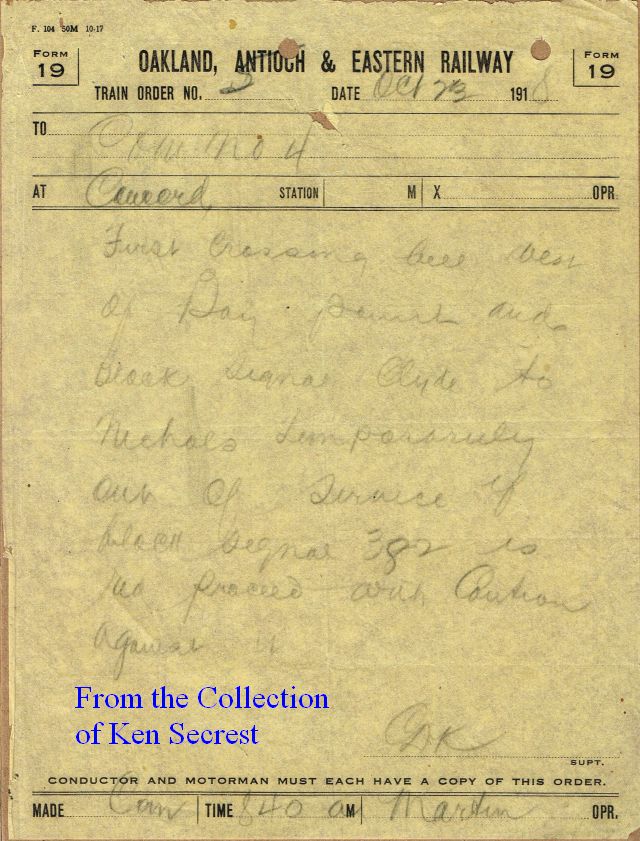 F. 104 50M 10-17
FORM 19 OAKLAND, ANTIOCH & EASTERN RAILWAY FORM 19
TRAIN ORDER NO. 2 DATE Oct 23 1918
TO C&M No 4
AT Concord, STATION M X OPR.
First Crossing bell West
of Bay Point and
block signal Clyde to
Nichols temporarily
out of service if
block signal 382 is
red proceed with Caution
against it
From the Collection
of Ken Secrest
SUPT.
CONDUCTOR AND MOTORMAN MUST EACH HAVE A COPY OF THIS ORDER.
MADE Com TIME 840 a M Martin OPR.